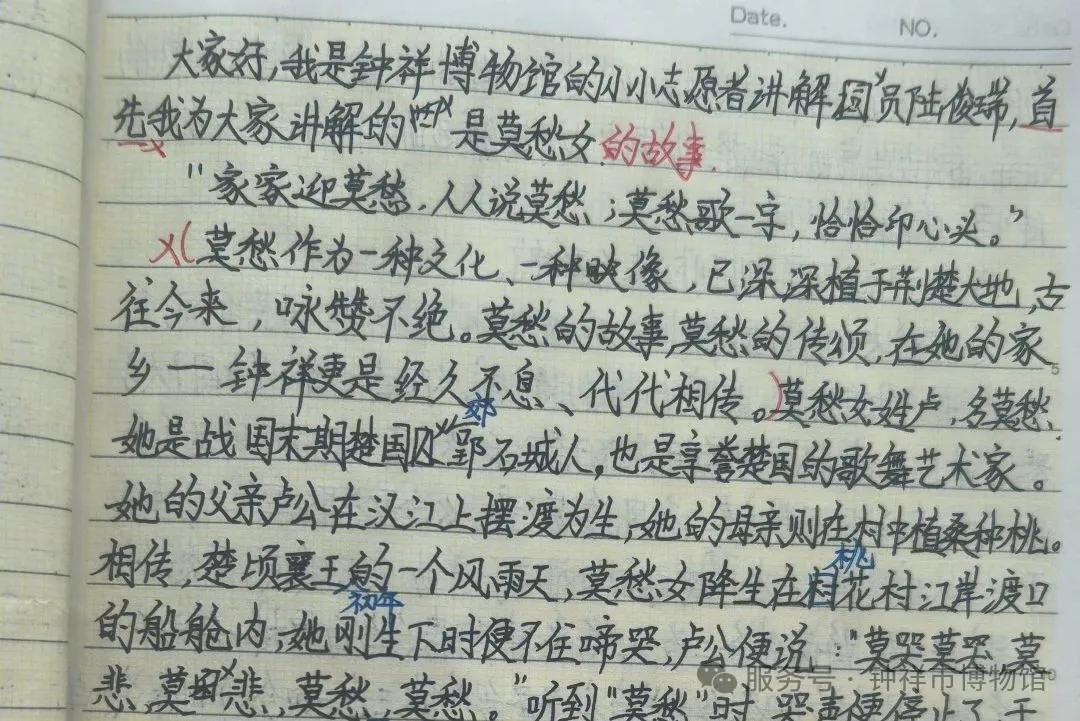 Date.
NO.
大家好,我是钟祥博物馆的小小志愿者讲解员陆俊瑞,首
先我为大家讲解的是莫愁女的故事.
"家家迎莫愁,人人说莫愁;莫愁歌一字,恰恰印心头。"
(莫愁作为一种文化、一种映像,已深深植于荆楚大地,古
往今来,咏赞不绝。莫愁的故事,莫愁的传颂,在她的家
乡一钟祥更是经久不息、代代相传。)莫愁女姓卢,名莫愁,
郊
她是战国末期楚国郢石城人。也是享誉楚国的歌舞艺术家。
她的父亲卢公在汉江上摆渡为生,她的母亲则在村中植桑种桃。
桃
相传,楚顷襄王的一个风雨天,莫愁女降生在花村江岸渡口
初年
的船舱内;她刚生下时便不住啼哭,卢公便说:"莫哭莫哭 莫
悲,莫悲,莫愁,莫愁。"听到"莫愁"时 哭声便停止了
服务号·钟祥市博物馆